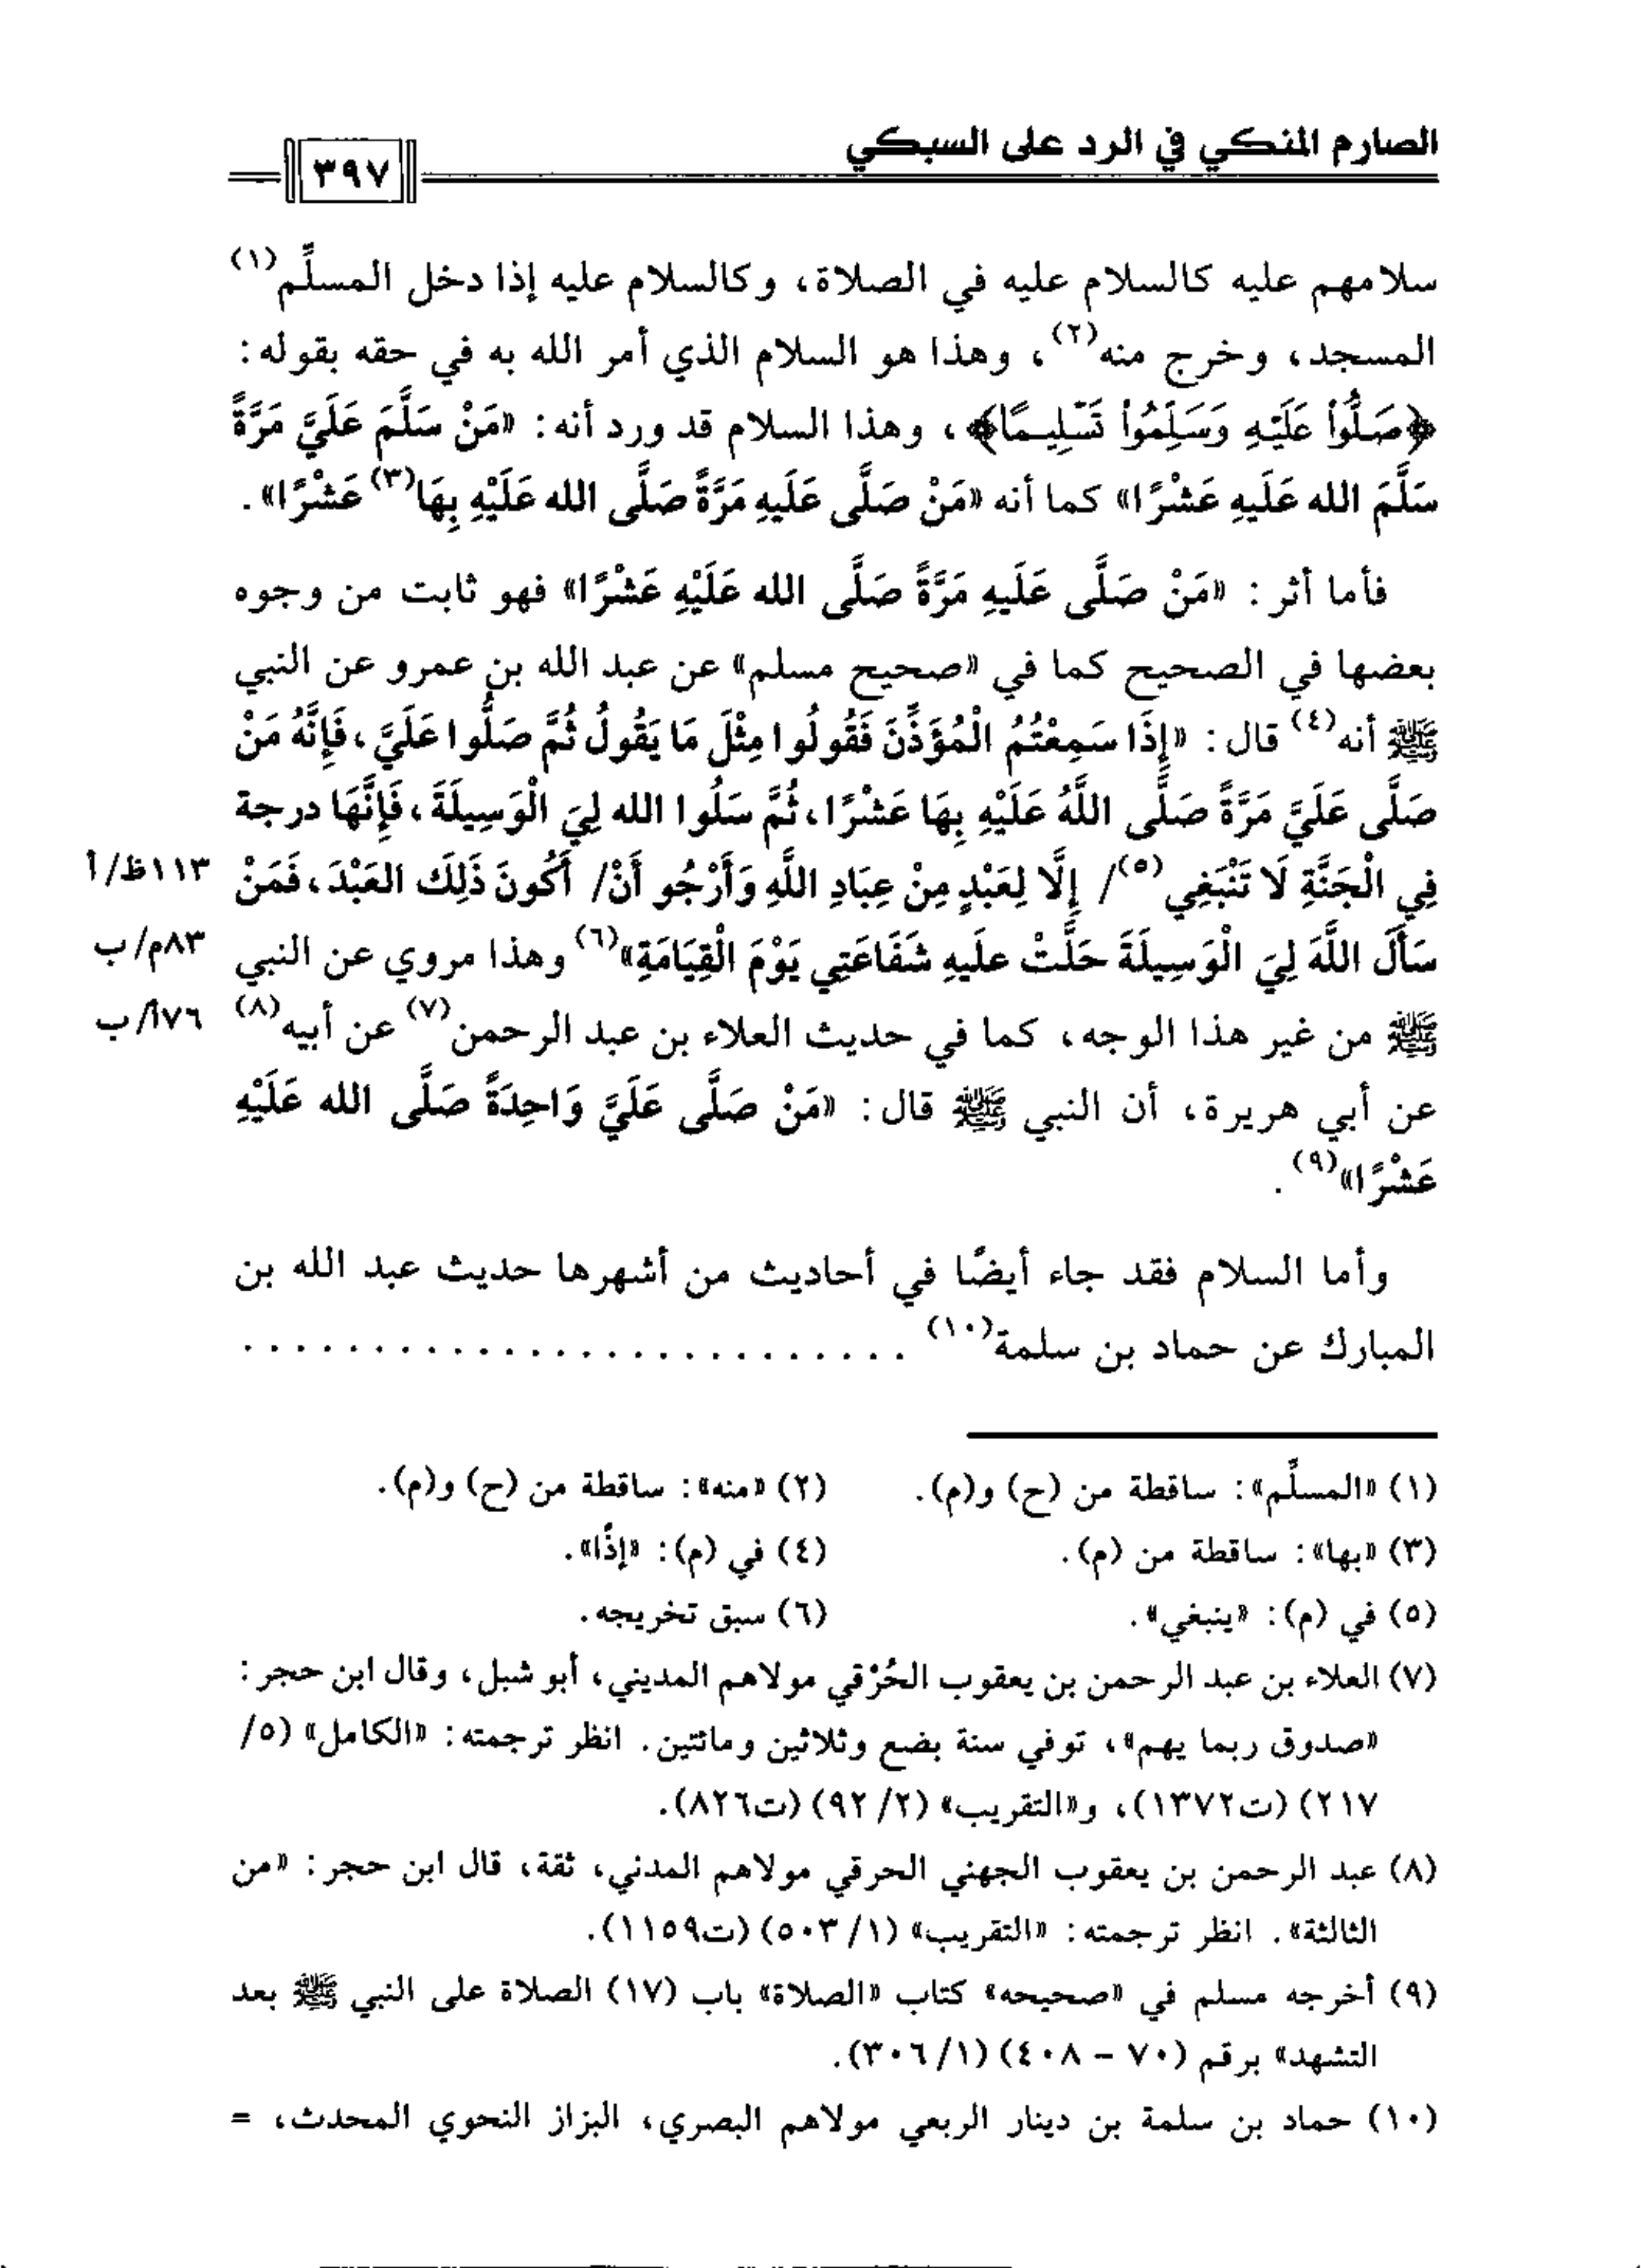 الصارم المنكي في الرد على السبكي
٣٩٧
سلامهم عليه كالسلام عليه في الصلاة، وكالسلام عليه إذا دخل المسلِّم(١)
المسجد، وخرج منه(٢)، وهذا هو السلام الذي أمر الله به في حقه بقوله:
﴿صَلُّواْ عَلَيۡهِ وَسَلِّمُواْ تَسۡلِيمًا﴾، وهذا السلام قد ورد أنه: «مَنْ سَلَّمَ عَلَيَّ مَرَّةً
سَلَّمَ الله عَلَيهِ عَشْرًا» كما أنه «مَنْ صَلَّى عَلَيهِ مَرَّةً صَلَّى الله عَلَيْهِ بِهَا(٣) عَشْرًا».
فأما أثر: «مَنْ صَلَّى عَلَيهِ مَرَّةً صَلَّى الله عَلَيْهِ عَشْرًا» فهو ثابت من وجوه
بعضها في الصحيح كما في «صحيح مسلم» عن عبد الله بن عمرو عن النبي
ﷺ أنه(٤) قال: «إِذَا سَمِعْتُمُ الْمُؤَذِّنَ فَقُولُوا مِثْلَ مَا يَقُولُ ثُمَّ صَلُّوا عَلَيَّ، فَإِنَّهُ مَنْ
صَلَّى عَلَيَّ مَرَّةً صَلَّى اللَّهُ عَلَيْهِ بِهَا عَشْرًا، ثُمَّ سَلُوا الله لِيَ الْوَسِيلَةَ، فَإِنَّهَا درجة
فِي الْجَنَّةِ لَا تَنْبَغِي(٥)/ إِلَّا لِعَبْدٍ مِنْ عِبَادِ اللَّهِ وَأَرْجُو أَنْ/ أَكُونَ ذَلِكَ العَبْدَ، فَمَنْ ١١٣ظ/أ
سَأَلَ اللَّهَ لِيَ الْوَسِيلَةَ حَلَّتْ علَيهِ شَفَاعَتِي يَوْمَ الْقِيَامَةِ»(٦) وهذا مروي عن النبي ٨٣م/ب
ﷺ من غير هذا الوجه، كما في حديث العلاء بن عبد الرحمن(٧) عن أبيه(٨) ٧٦أ/ب
عن أبي هريرة، أن النبي ﷺ قال: «مَنْ صَلَّى عَلَيَّ وَاحِدَةً صَلَّى الله عَلَيْهِ
عَشْرًا»(٩).
وأما السلام فقد جاء أيضًا في أحاديث من أشهرها حديث عبد الله بن
المبارك عن حماد بن سلمة(١٠) . . . . . . . . . . . . . . . . . . . . . . . . . .
(١) «المسلِّم»: ساقطة من (ح) و(م). (٢) «منه»: ساقطة من (ح) و(م).
(٣) «بها»: ساقطة من (م). (٤) في (م): «إذًا».
(٥) في (م): «ينبغي». (٦) سبق تخريجه.
(٧) العلاء بن عبد الرحمن بن يعقوب الحُرْقي مولاهم المديني، أبو شبل، وقال ابن حجر:
«صدوق ربما يهم»، توفي سنة بضع وثلاثين ومائتين. انظر ترجمته: «الكامل» (٥/
٢١٧) (ت١٣٧٢)، و«التقريب» (٢/ ٩٢) (ت٨٢٦).
(٨) عبد الرحمن بن يعقوب الجهني الحرقي مولاهم المدني، ثقة، قال ابن حجر: «من
الثالثة». انظر ترجمته: «التقريب» (١/ ٥٠٣) (ت١١٥٩).
(٩) أخرجه مسلم في «صحيحه» كتاب «الصلاة» باب (١٧) الصلاة على النبي ﷺ بعد
التشهد» برقم (٧٠ – ٤٠٨) (١/ ٣٠٦).
(١٠) حماد بن سلمة بن دينار الربعي مولاهم البصري، البزاز النحوي المحدث، =